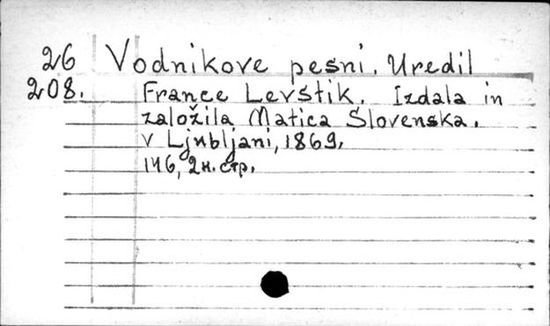 26 Vodnikove pesni. Uredil
208. France Levstik. Izdala in
založila Matica Slovenska.
v Ljubljani, 1869.
146, 2 н. стр.